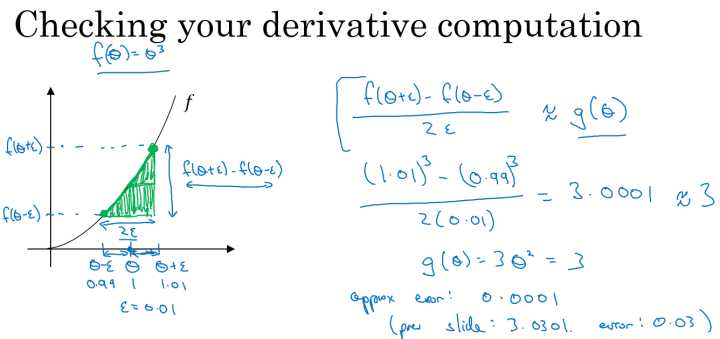 Checking your derivative computation
f(θ) = θ³
f
f(θ+ε)
f(θ-ε)
f(θ+ε) - f(θ-ε)
2ε
θ-ε θ θ+ε
0.99 1 1.01
ε = 0.01
f(θ+ε) - f(θ-ε) / 2ε ≈ g(θ)
(1.01)³ - (0.99)³ / 2(0.01) = 3.0001 ≈ 3
g(θ) = 3θ² = 3
approx error: 0.0001
(prev slide: 3.0301. error: 0.03)